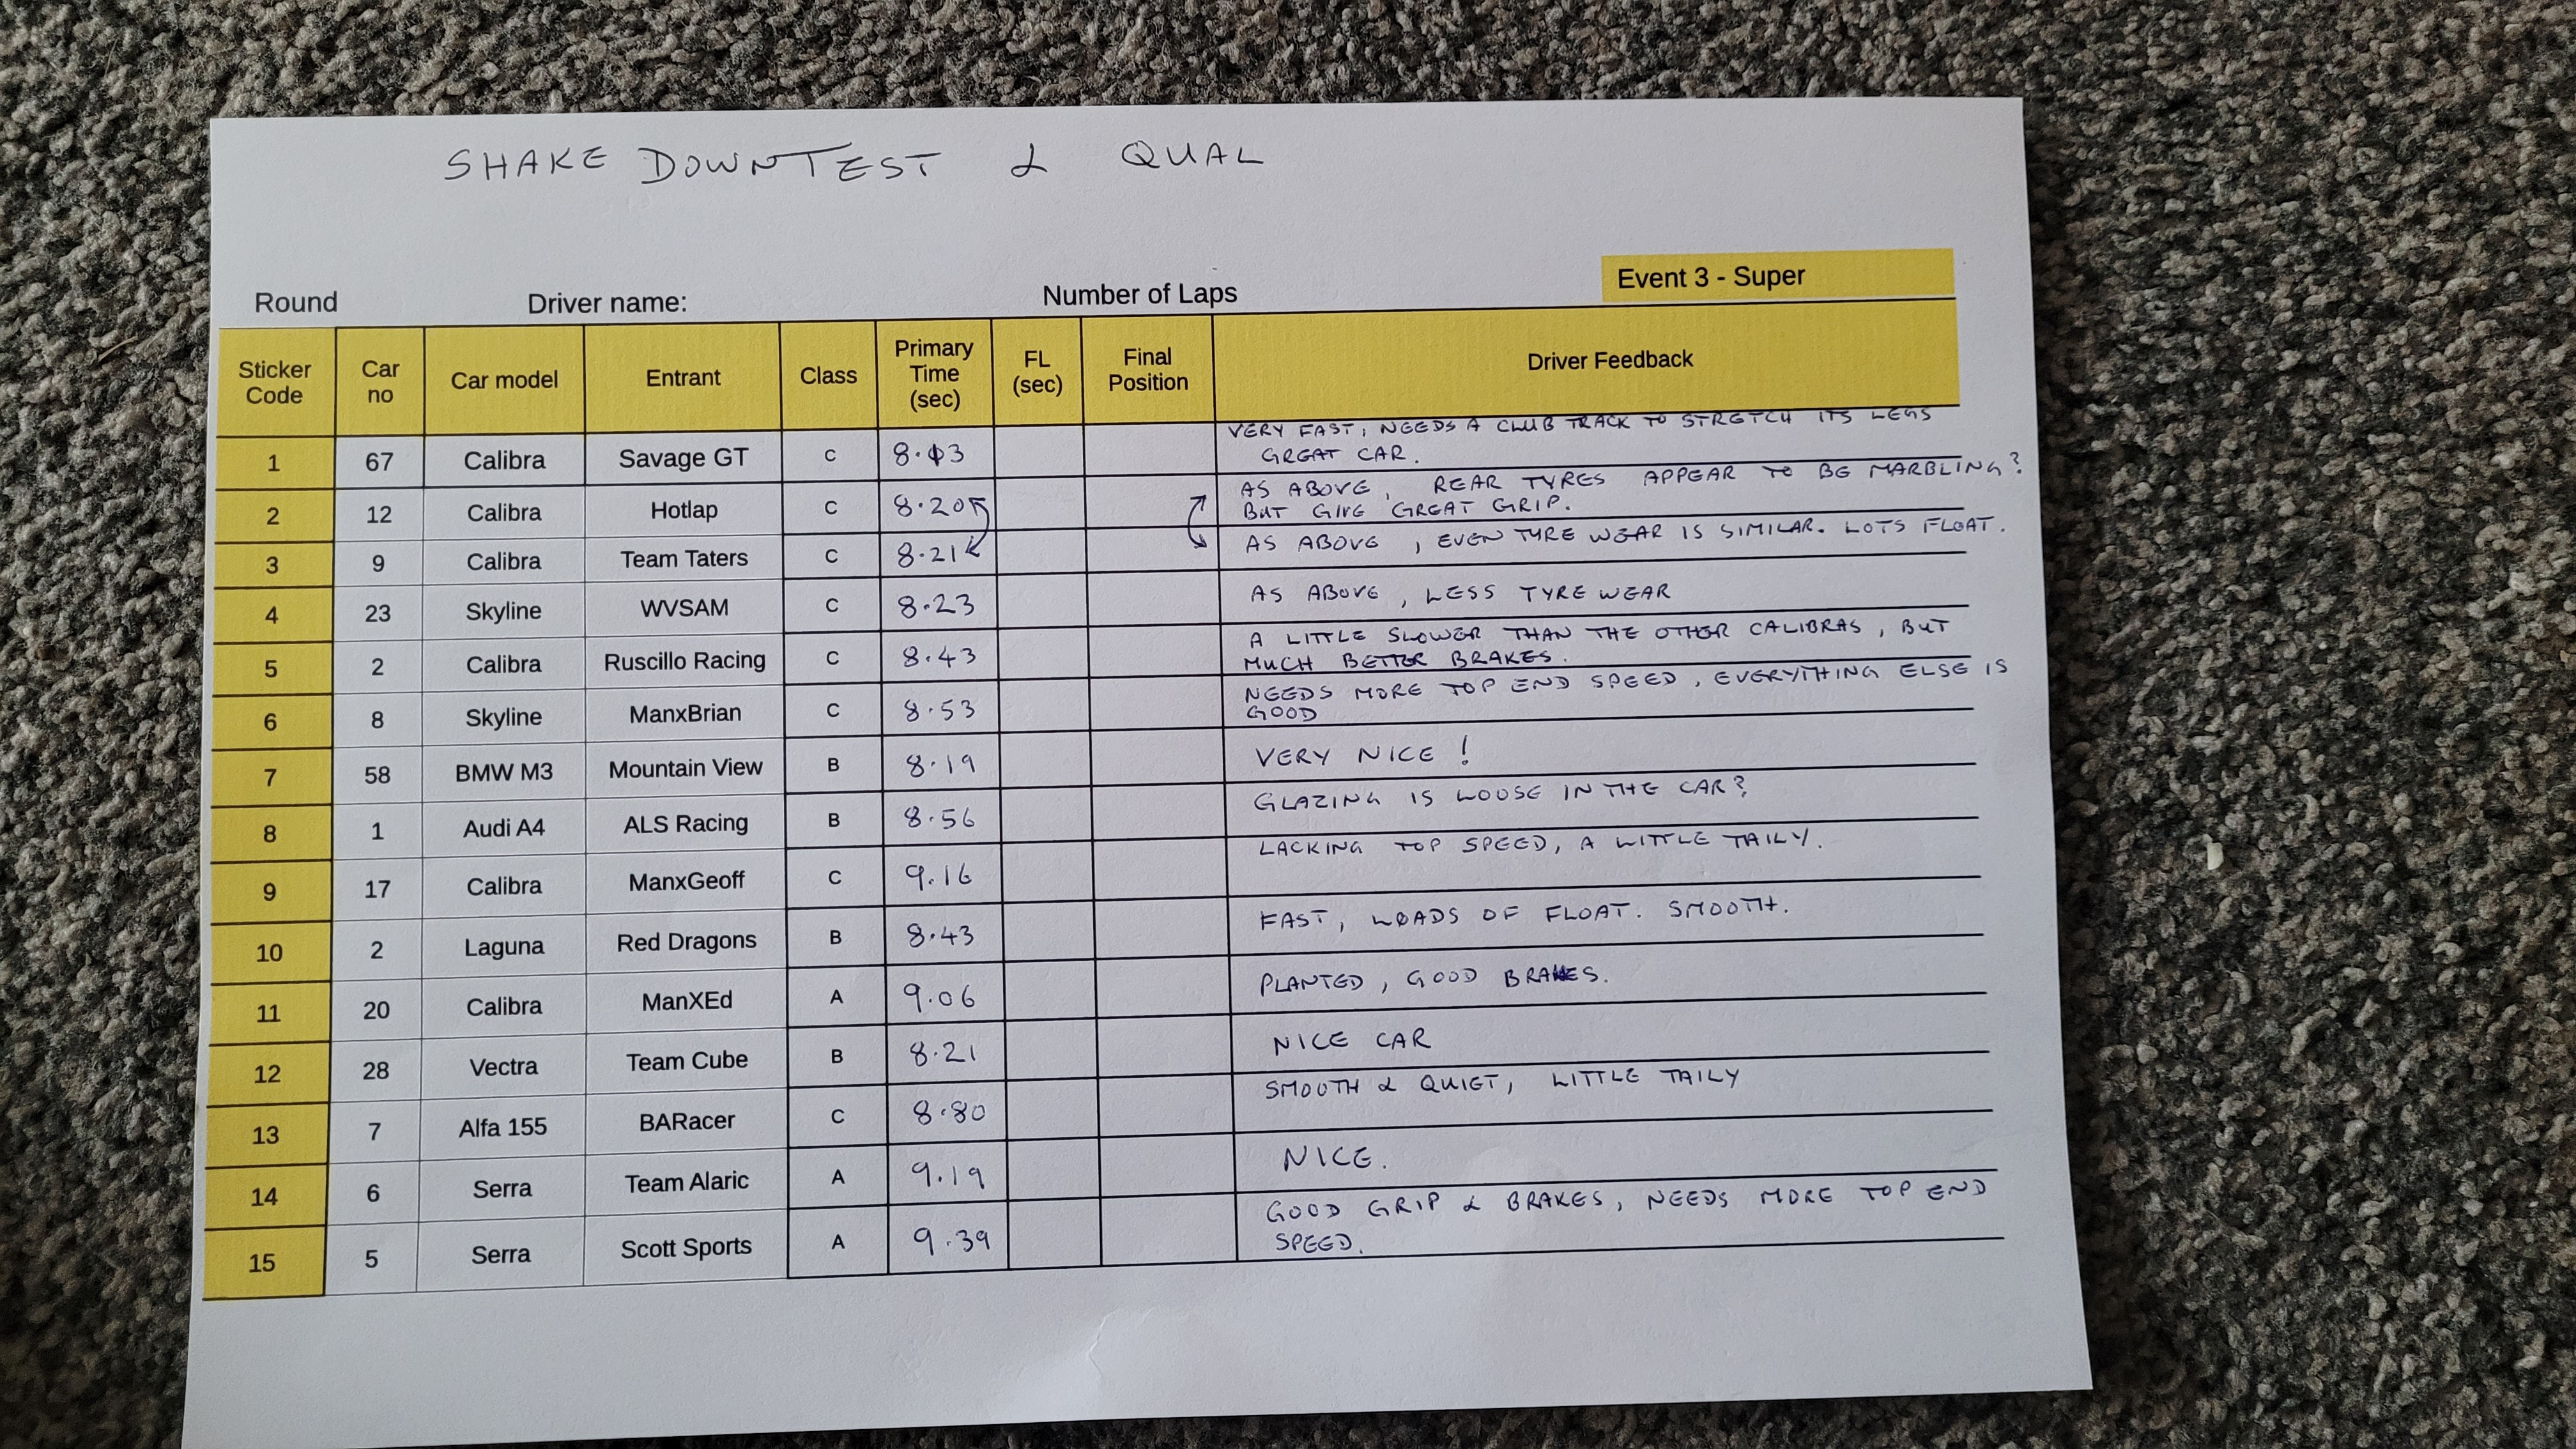 SHAKE DOWN TEST & QUAL
Event 3 - Super
Round Driver name: Number of Laps
Sticker Code Car no Car model Entrant Class Primary Time (sec) FL (sec) Final Position Driver Feedback
1 67 Calibra Savage GT C VERY FAST, NEEDS A CLUB TRACK TO STRETCH ITS LEGS
GREAT CAR.
2 12 Calibra Hotlap C 8.20 AS ABOVE, REAR TYRES APPEAR TO BE MARBLING?
BUT GIVE GREAT GRIP.
3 9 Calibra Team Taters C 8.21 AS ABOVE, EVEN TYRE WEAR IS SIMILAR. LOTS FLOAT.
4 23 Skyline WVSAM C 8.23 AS ABOVE, LESS TYRE WEAR
5 2 Calibra Ruscillo Racing C 8.43 A LITTLE SLOWER THAN THE OTHER CALIBRAS, BUT
MUCH BETTER BRAKES.
6 8 Skyline ManxBrian C 8.53 NEEDS MORE TOP END SPEED, EVERYTHING ELSE IS
GOOD
7 58 BMW M3 Mountain View B 8.19 VERY NICE!
8 1 Audi A4 ALS Racing B 8.56 GLAZING IS LOOSE IN THE CAR?
9 17 Calibra ManxGeoff C 9.16 LACKING TOP SPEED, A LITTLE TAILY.
10 2 Laguna Red Dragons B 8.43 FAST, LOADS OF FLOAT. SMOOTH.
11 20 Calibra ManXEd A 9.06 PLANTED, GOOD BRAKES.
12 28 Vectra Team Cube B 8.21 NICE CAR
13 7 Alfa 155 BARacer C 8.80 SMOOTH & QUIET, LITTLE TAILY
14 6 Serra Team Alaric A 9.19 NICE.
15 5 Serra Scott Sports A 9.39 GOOD GRIP & BRAKES, NEEDS MORE TOP END
SPEED.